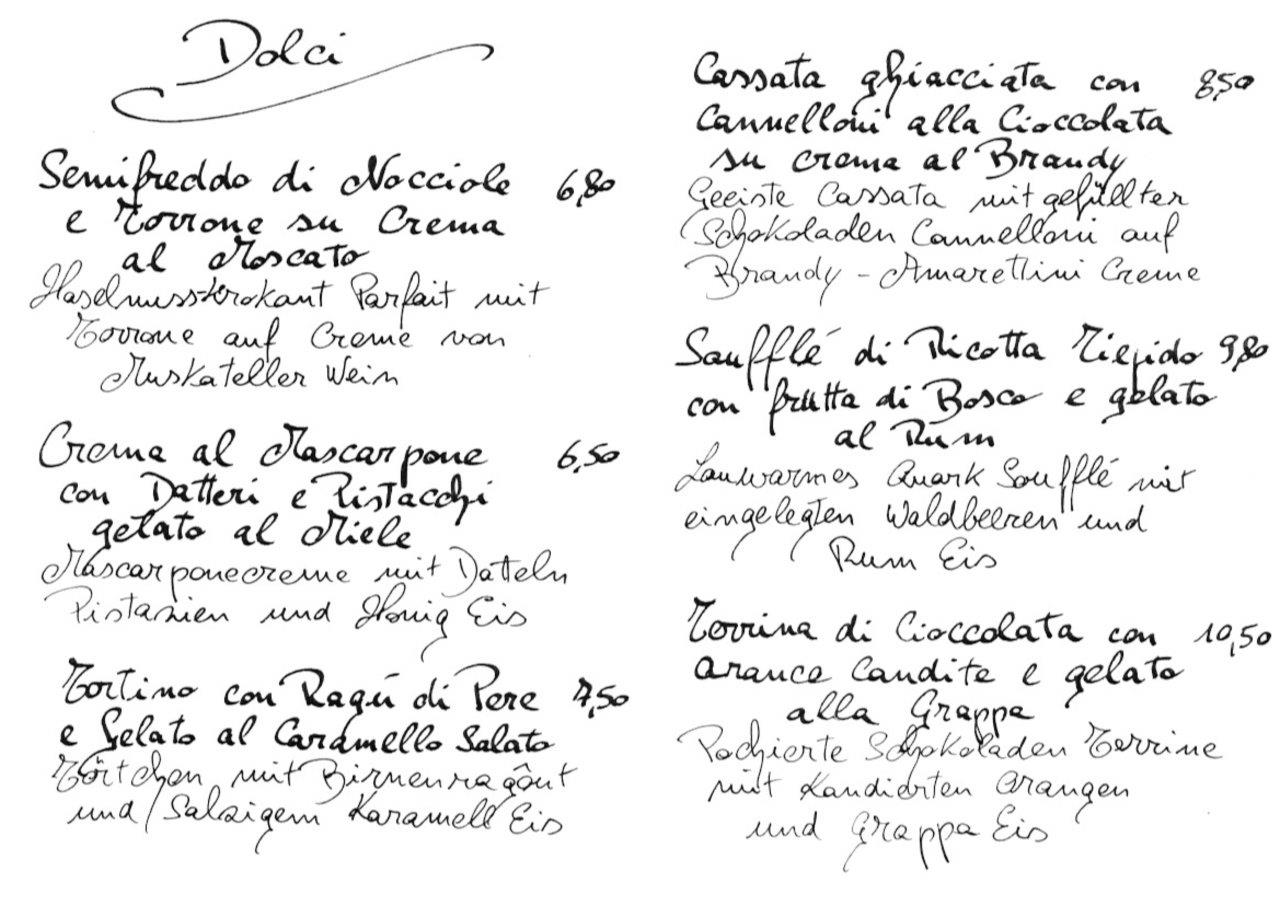 Dolci
Semifreddo di Nocciole 6,80
e Torrone su Crema
al Moscato
Haselnusskrokant Parfait mit
Torrone auf Creme von
Muskateller Wein
Crema al Mascarpone 6,50
con Datteri e Pistacchi
gelato al Miele
Mascarponecreme mit Datteln
Pistazien und Honig Eis
Tortino con Ragú di Pere 7,50
e Gelato al Caramello Salato
Törtchen mit Birnenragôut
und Salzigem Karamell Eis
Cassata ghiacciata con 8,50
Cannelloni alla Cioccolata
su crema al Brandy
Geeiste Cassata mit gefüllter
Schokoladen Cannelloni auf
Brandy - Amarettini Creme
Soufflé di Ricotta Tiepido 9,80
con frutta di Bosco e gelato
al Rum
Lauwarmes Quark Soufflé mit
eingelegten Waldbeeren und
Rum Eis
Terrina di Cioccolata con 10,50
arance Candite e gelato
alla Grappa
Pochierte Schokoladen Terrine
mit Kandierten Orangen
und Grappa Eis